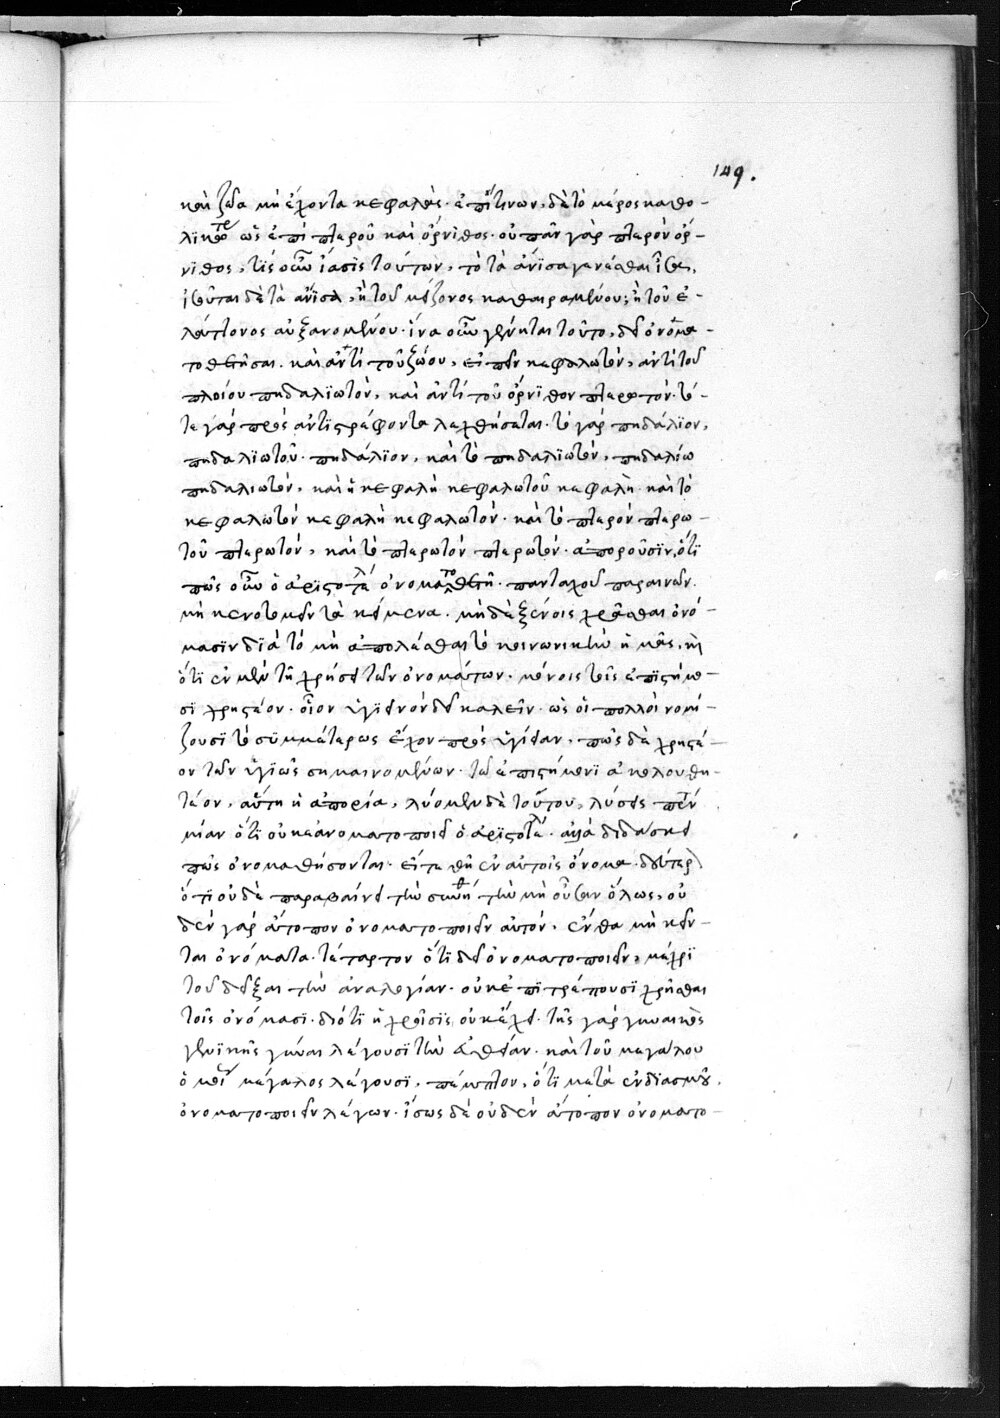 149.
καὶ ζῶα μὴ ἔχοντα κεφαλάς. ἐπί τινων, δὲ τὸ μέρος καθο-
λικώτερον ὡς ἐπὶ πτεροῦ καὶ ὄρνιθος. οὐ πᾶν γὰρ πτερὸν ὄρ-
νιθος, τίς οὖν ἴασις τούτων, τὸ τὰ ἄνϊσα γενέσθαι ἶσα,
ἰσοῦται δὲ τὰ ἄνϊσα, ἢ τοῦ μείζονος καθαιρομένου; ἢ τοῦ ἐ-
λάττονος αὐξανομένου. ἵνα οὖν γένηται τοῦτο, δεῖ ὀνομα-
τοθετῆσαι. καὶ ἀντὶ τοῦ ζώου, εἰπεῖν κεφαλωτόν, ἀντὶ τοῦ
πλοίου πηδαλϊωτόν, καὶ ἀντὶ τοῦ ὄρνϊθον πτερωτόν. τό-
τε γὰρ πρὸς ἀντϊστρέφοντα λεχθήσεται. τὸ γὰρ πηδάλϊον,
πηδαλϊωτοῦ. πηδάλϊον, καὶ τὸ πηδαλϊωτόν, πηδαλίω
πηδαλιωτόν, καὶ ἡ κεφαλὴ κεφαλωτοῦ κεφαλή. καὶ τὸ
κεφαλωτόν κεφαλῇ κεφαλωτόν. καὶ τὸ πτερόν πτερω-
τοῦ πτερωτόν, καὶ τὸ πτερωτόν πτερωτόν. ἀποροῦσϊν, ὅτϊ
πῶς οὖν ὁ ἀρϊστοτέλης ὀνοματοθετεῖ. πανταχοῦ παραινῶν
μὴ κενοτομεῖν τὰ κείμενα. μὴ δὲ ξένοις χρᾶσθαι ὀνό-
μασϊν δϊὰ τὸ μὴ ἀπολέσθαι τὸ κοινωνικὸν ἡμᾶς, καὶ
ὅτϊ ἐν μὲν τῇ χρήσει τῶν ὀνομάτων. μένοις τοῖς ἐπϊστήμο-
σϊ χρηστέον. οἷον ὑγϊεινόν δεῖ καλεῖν. ὡς οἱ πολλοὶ νομί-
ζουσϊ τὸ συμμέτρως ἔχον πρὸς ὑγίειαν. πῶς δὲ χρηστέ-
ον τῶν ὑγϊῶς σημαινομένων. τῷ ἐπιστήμονϊ ἀκολουθη-
τέον. αὕτη ἡ ἀπορία, λύομεν δὲ τοῦτον, λύσεις πέντε
μίαν ὅτϊ οὐκ ὀνοματοποιεῖ ὁ ἀρϊστοτέλης. ἀλλὰ διδάσκει
πῶς ὀνομαθήσονται. εἴτε θῇ ἐν αὐτοῖς ὄνομα. δεύτερον
ὅτϊ οὐδὲ παραβαίνει τὴν συνήθειαν τὴν μὴ οὖσαν ὅλως, οὐ
δέν γὰρ ἄτοπον ὀνοματοποιεῖν αὐτόν. ἔνθα μὴ κεῖν-
ται ὀνόματα. τέταρτον ὅτϊ δεῖ ὀνοματοποιεῖν, μέχρι
τοῦ δεῖξαι τὴν ἀναλογίαν. οὐκ ἐπϊτρέπουσϊ χρῆσθαι
τοῖς ὀνόμασϊ. διότϊ ἡ χρῆσϊς οὐκ ἔχει. τῆς γὰρ γυναικὸς
γενϊκῆς γύναι λέγουσϊ τὴν εὐθεῖαν. καὶ τοῦ μεγάλου
ὁ καὶ μέγαλος λέγουσϊ, πέμπτον, ὅτϊ μετὰ ἐνδϊασμοῦ.
ὀνοματοποιεῖν λέγων. ἴσως δὲ οὐδὲν ἄτοπον ὀνοματο-